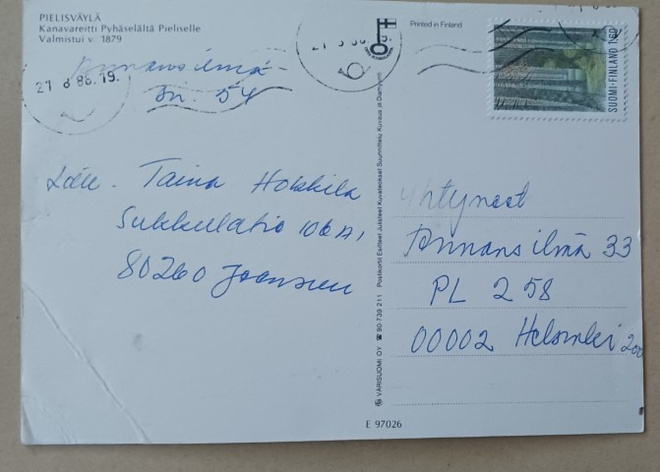 PIELISVÄYLÄ
Kanavareitti Pyhäselältä Pieliselle
Valmistui v. 1879
Printed in Finland
SUOMI-FINLAND 1,60
Annansilmä
54
Taina Hokkila
80260 Joensuu
Yhtyneet
Annansilmä 33
PL 258
00002 Helsinki 200
VÄRISUOMI OY ☎ 90 739 211 Postikortit Esitteet Julisteet Kuvateokset Suunnittelu Kuvaus ja Diamyynti
E 97026